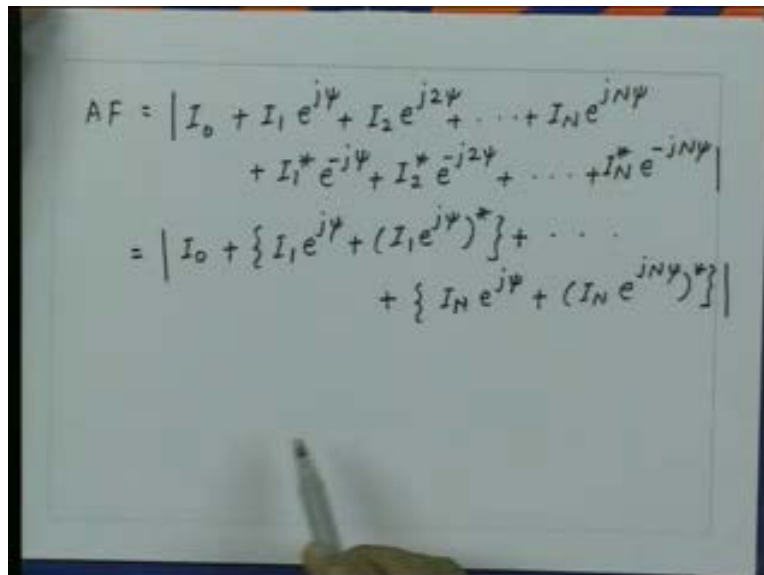 AF = | I₀ + I₁ e^{jψ} + I₂ e^{j2ψ} + . . . + I_N e^{jNψ}
+ I₁* e^{-jψ} + I₂* e^{-j2ψ} + . . . . + I_N* e^{-jNψ} |
= | I₀ + { I₁ e^{jψ} + (I₁ e^{jψ})* } + . . .
+ { I_N e^{jψ} + (I_N e^{jNψ})* } |